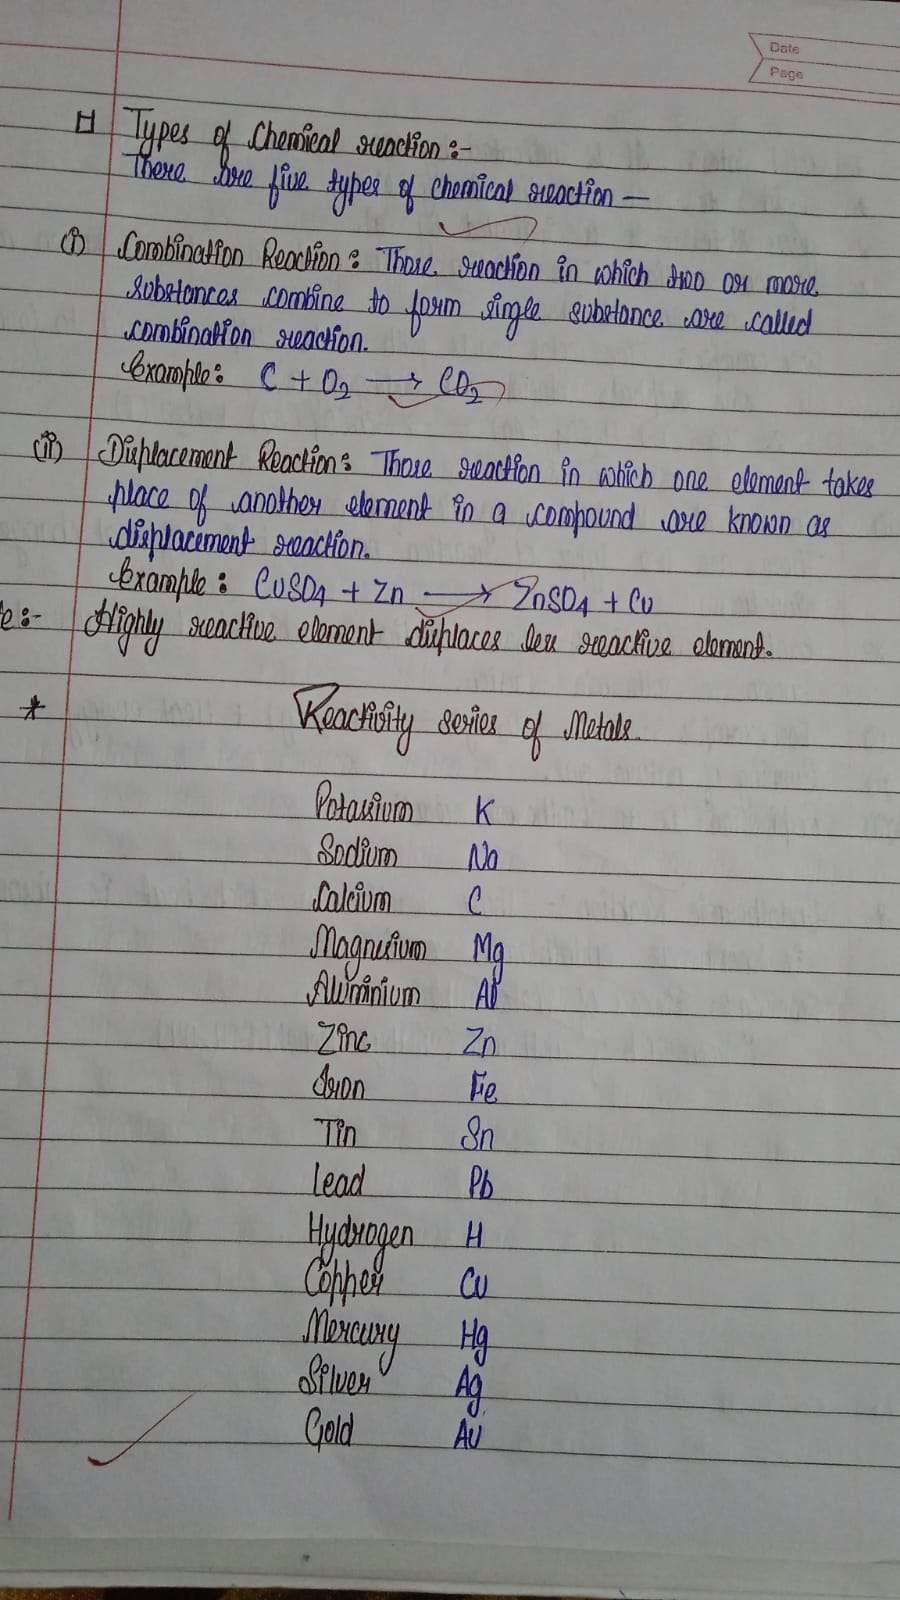 Date
Page
Types of Chemical reaction :-
There are five types of chemical reaction —
(i) Combination Reaction : Those reaction in which two or more
substances combine to form single substance are called
combination reaction.
Example : C + O₂ → CO₂
(ii) Displacement Reaction : Those reaction in which one element takes
place of another element in a compound are known as
displacement reaction.
Example : CuSO₄ + Zn → ZnSO₄ + Cu
e :- Highly reactive element displaces less reactive element.
* Reactivity series of Metals.
Potassium K
Sodium Na
Calcium C
Magnesium Mg
Aluminium Al
Zinc Zn
Iron Fe
Tin Sn
Lead Pb
Hydrogen H
Copper Cu
Mercury Hg
Silver Ag
Gold Au